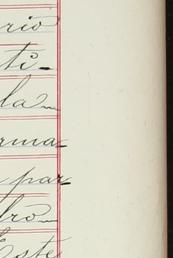 rio
ti-
la
rma-
par-
dro
Este